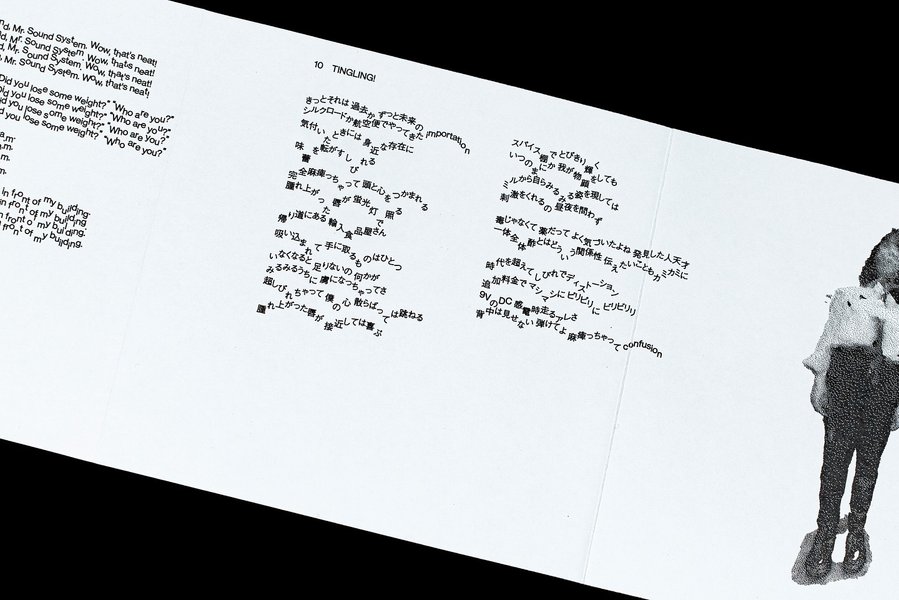 d, Mr. Sound System. Wow, that's neat!
d, Mr. Sound System. Wow, that's neat!
d, Mr. Sound System. Wow, that's neat!
, Mr. Sound System. Wow, that's neat!
Did you lose some weight?" "Who are you?"
Did you lose some weight?" "Who are you?"
Did you lose some weight?" "Who are you?"
d you lose some weight?" "Who are you?"
a.m.
a.m.
.m.
.m.
in front of my building.
in front of my building.
n front of my building.
front of my building.
10 TINGLING!
きっとそれは 過去か ずっと未来の importation
シルクロードか航空便でやってきた
気付いたときには 身近な存在に
味を転がすしびれる
完全麻痺っちゃって 頭と心をつかまれる
腫れ上がった 唇が 蛍光灯で照る
帰り道にある 輸入食品屋さん
吸い込まれて 手に取るものはひとつ
いなくなると 足りないの 何かが
みるみるうちに 虜になっちゃってさ
超しびれちゃって 僕の心 散らばっては跳ねる
腫れ上がった唇が 接近しては喜ぶ
スパイス棚で とびきり輝く
いつのまにか 我が物顔をしても
ミルから自らみるみる姿を現しては
刺激をくれるの 昼夜を問わず
毒じゃなくて 薬だって よく気づいたよね 発見した人天才
一体全体 酢とはどういう関係性 伝えたいこともカミカミに
時代を超えて しびれでディストーション
追加料金で マシマシにビリビリに ビリビリリ
9VのDC 感電時走るアレさ
背中は見せない 弾けてよ 麻痺っちゃって confusion